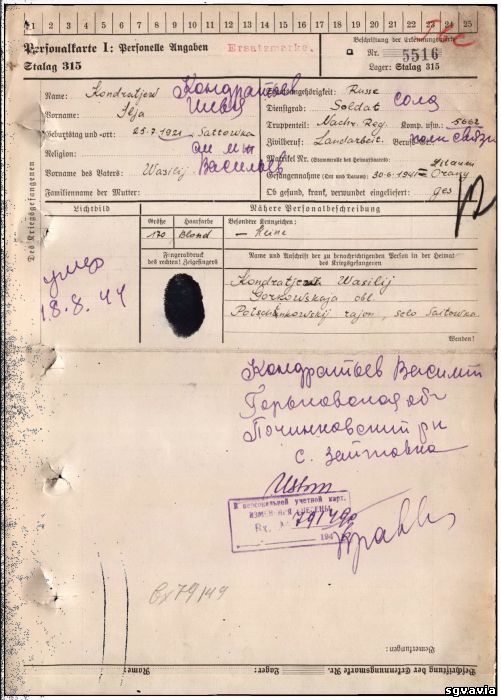 1 2 3 4 5 6 7 8 9 10 11 12 13 14 15 16 17 18 19 20 21 22 23 24 25
Personalkarte I: Personelle Angaben
Ersatzmarke.
Beschriftung der Erkennungsmarke
Nr. 5516
Stalag 315
Lager: Stalag 315
Des Kriegsgefangenen
Name: Kondratjew Кондратьев
Staatsangehörigkeit: Russe
Vorname: Ilja Илья
Dienstgrad: Soldat солд
Truppenteil: Nachr. Reg. Komp. usw.: 5662
Geburtstag und -ort: 25.7.1921 Saitowka
Zivilberuf: Landarbeit. полк связи
Religion:
Matrikel Nr. (Stammrolle des Heimatstaates):
Vorname des Vaters: Wasilij Васильев
Gefangennahme (Ort und Datum): 30.6.1941 Orany
Familienname der Mutter:
Ob gesund, krank, verwundet eingeliefert: ges
Lichtbild
Nähere Personalbeschreibung
Größe
Haarfarbe
Besondere Kennzeichen:
170
Blond
– Keine
Fingerabdruck
des rechten! Zeigefingers
Name und Anschrift der zu benachrichtigenden Person in der Heimat
des Kriegsgefangenen
умер
18.8.44
Kondratjew Wasilij
Gorkowskaja obl.
Potschinkowskij rajon, selo Saitowka
Wenden!
Кондратьев Василий
Горьковская обл
Починковский рн
с. Зейтовка
В персональной учетной карт.
ИЗМЕНЕНИЯ ВНЕСЕНЫ
Вх. № 79/49
194
Вх 79/49
Bemerkungen:
Name:
Lager:
Beschriftung der Erkennungsmarke Nr.
sgvavia